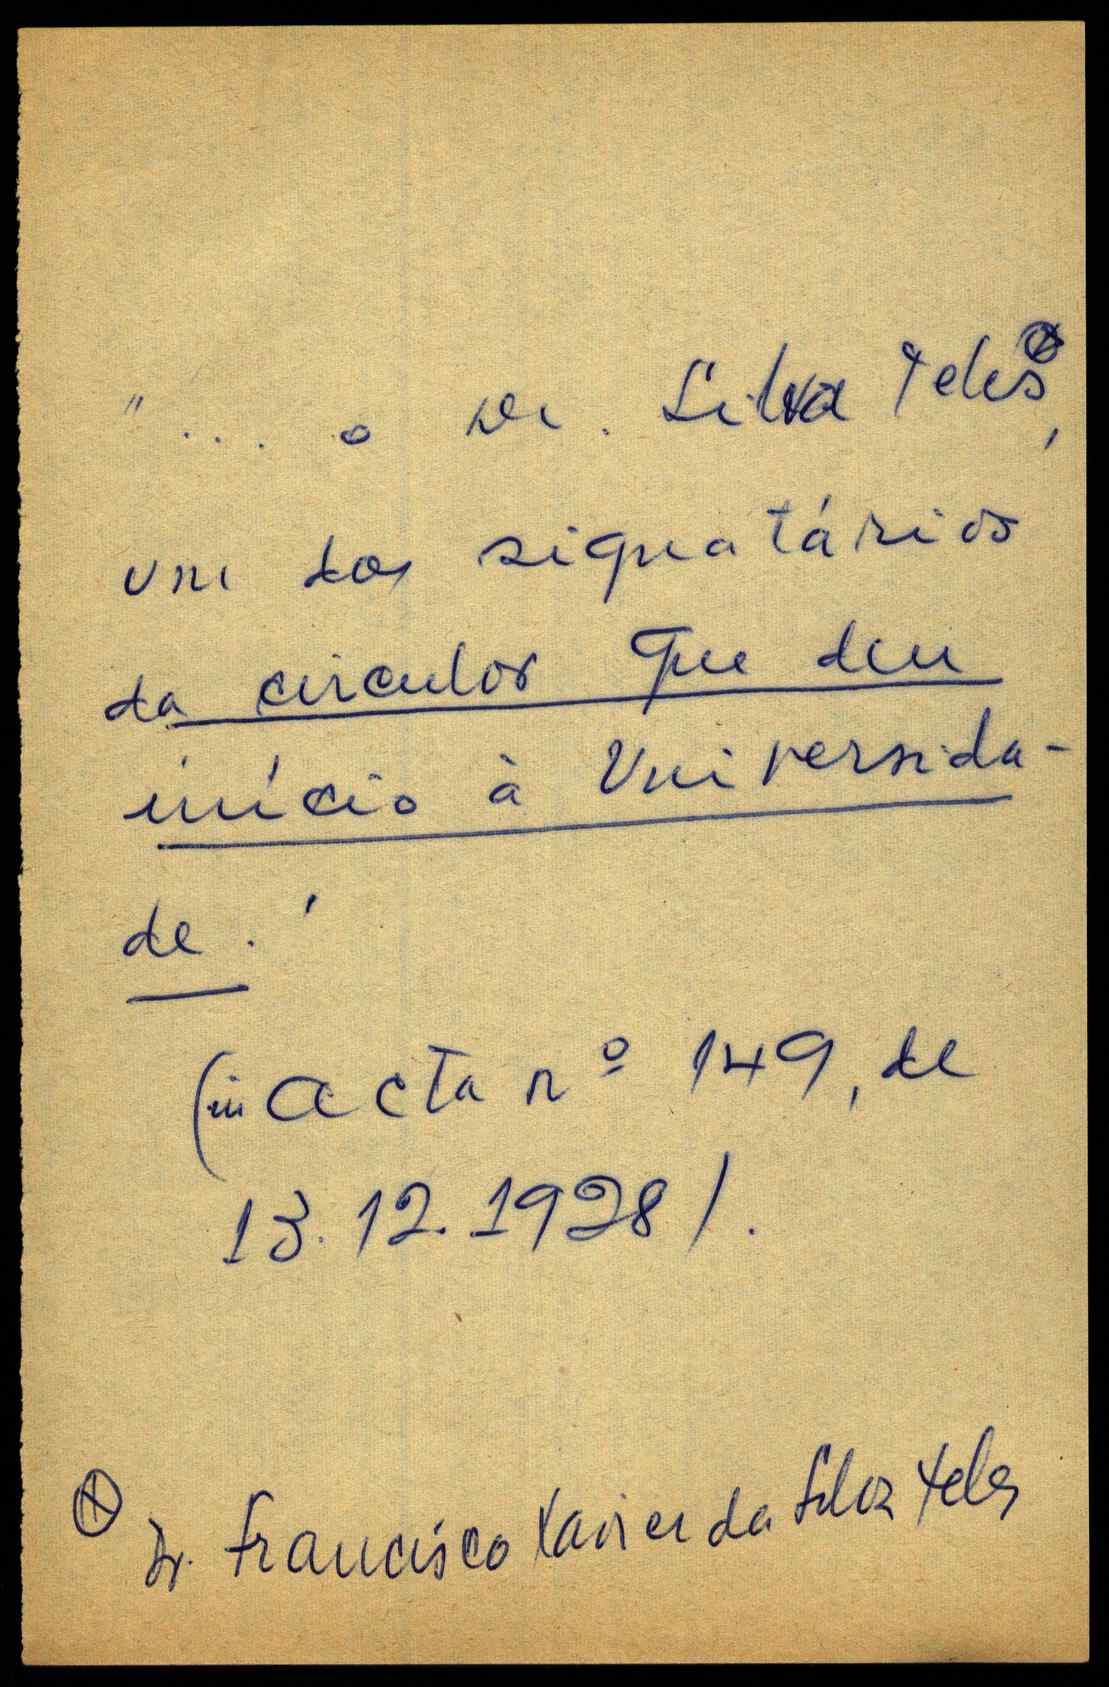 "... o Dr. Silva Teles ⊗,
um dos signatários
da circular que deu
início à Universida-
de."
(in acta nº 149, de
13.12.1928).
⊗ Dr. Francisco Xavier da Silva Teles